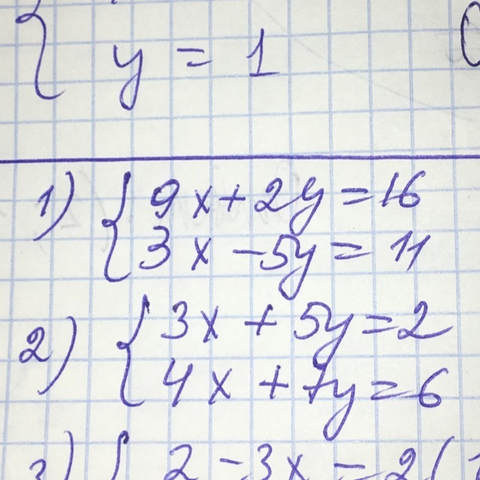 y = 1
1) { 9x + 2y = 16
3x - 5y = 11
2) { 3x + 5y = 2
4x + 7y = 6
3) { 2 - 3x = 2(